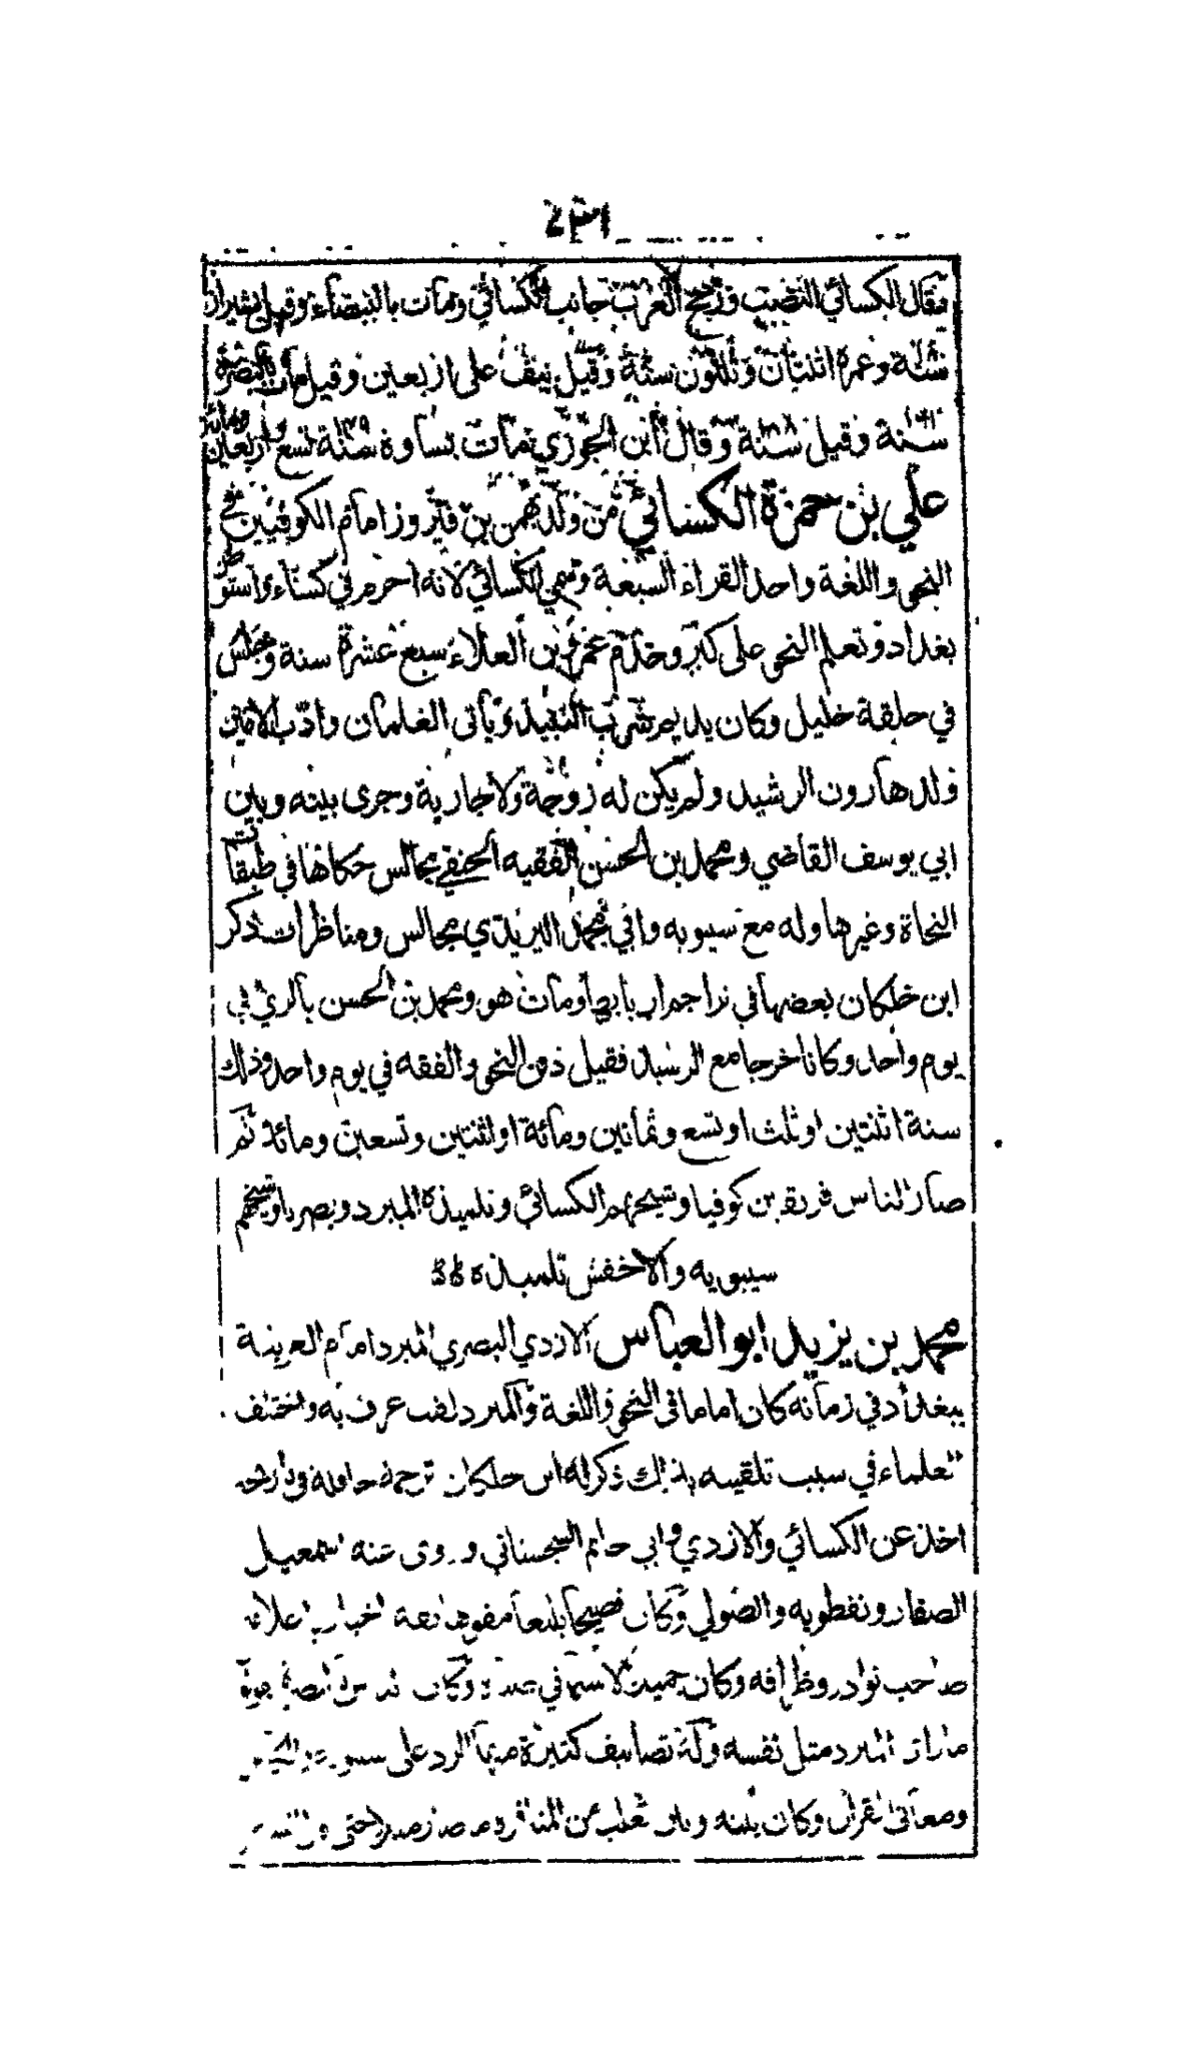 فقال الكسائي النصب ورجح العرب جانب الكسائي ومات بالبيضاء وقيل بشيراز
سنة وعمره اثنتان وثلثون سنة وقيل نيف على اربعين وقيل مات بالبصرة
سنة وقيل سنة وقال ابن الجوزي مات بساوة سنة تسع واربعين ومائة
علي بن حمزة الكسائي من ولد بهمن بن فيروز امام الكوفيين في
النحو واللغة واحد القراء السبعة وسمي الكسائي لانه احرم في كساء واستوطن
بغداد وتعلم النحو على كبر وخدم عمرو بن العلاء سبع عشرة سنة وجلس
في حلقة خليل وكان يديم شرب النبيذ وياتى الغلمان وادب الامين
ولد هارون الرشيد ولم يكن له زوجة ولا جارية وجرى بينه وبين
ابي يوسف القاضي ومحمد بن الحسن الفقيه الحنفي مجالس حكاها في طبقات
النحاة وغيرها وله مع سيبويه وابي محمد اليزيدي مجالس ومناظرات ذكر
ابن خلكان بعضها في تراجم اربابها ومات هو ومحمد بن الحسن بالري في
يوم واحد وكانا خرجا مع الرشيد فقيل دفن النحو والفقه في يوم واحد وذلك
سنة اثنتين او ثلث او تسع وثمانين ومائة او اثنتين وتسعين ومائة ثم
صار الناس فريقين كوفيا وشيخهم الكسائي وتلميذه المبرد وبصريا وشيخهم
سيبويه والاخفش تلميذه
محمد بن يزيد ابو العباس الازدي البصري المبرد امام العربية
ببغداد في زمانه كان اماما في النحو واللغة والمبرد لقب عرف به واختلف
العلماء في سبب تلقيبه بذلك ذكر له ابن خلكان ترجمة حافلة في تاريخه
اخذ عن الكسائي والازدي وابي حاتم السجستاني وروى عنه اسمعيل
الصفار ونفطويه والصولي وكان فصيحا بليغا مفوها ثقة اخباريا علامة
صاحب نوادر وظرافة وكان جميلا لاسيما في
ماراى المبرد مثل نفسه وله تصانيف كثيرة منها الرد على سيبويه
ومعاني القران وكان بينه وبين ثعلب من المنافرة